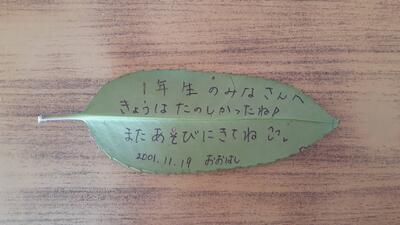 1年生のみなさんへ
きょうはたのしかったね♪
またあそびにきてね
2001.11.19 おおはし